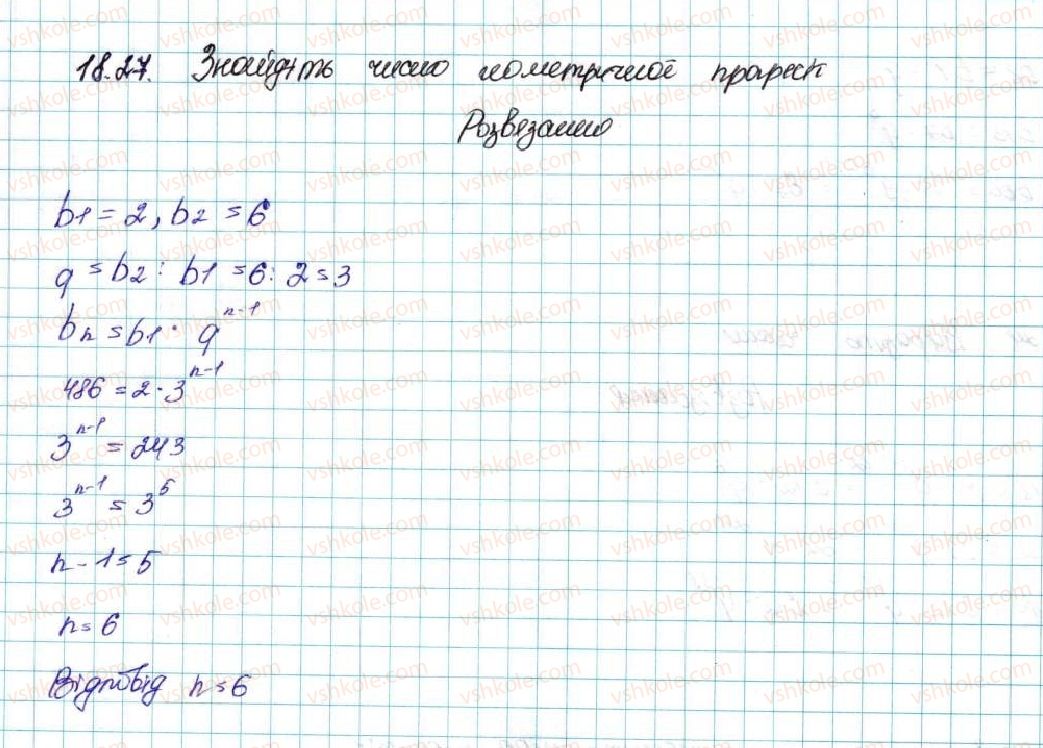 18.27. Знайдіть число геометричної прогресії
Розв'язання
b1 = 2, b2 = 6
q = b2 : b1 = 6 : 2 = 3
bn = b1 · q^n-1
486 = 2 · 3^n-1
3^n-1 = 243
3^n-1 = 3^5
n - 1 = 5
n = 6
Відповідь n = 6